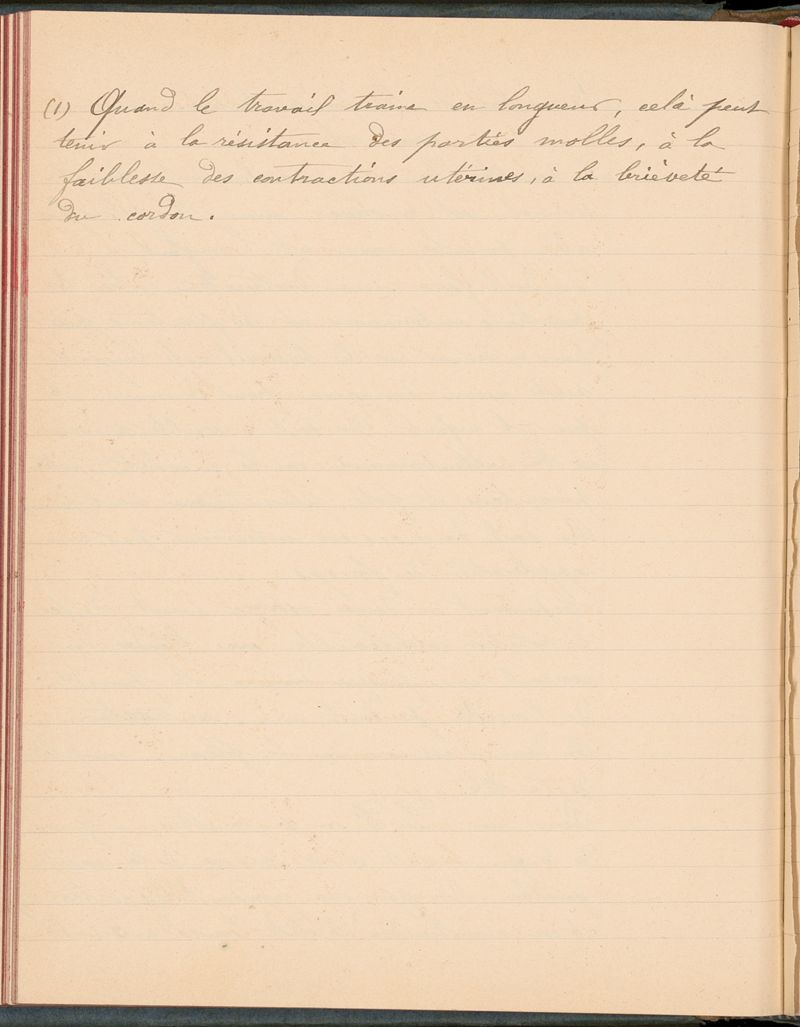 (1) Quand le travail traine en longueur, celà peut
tenir à la résistance des parties molles, à la
faiblesse des contractions utérines, à la brièveté
du cordon.